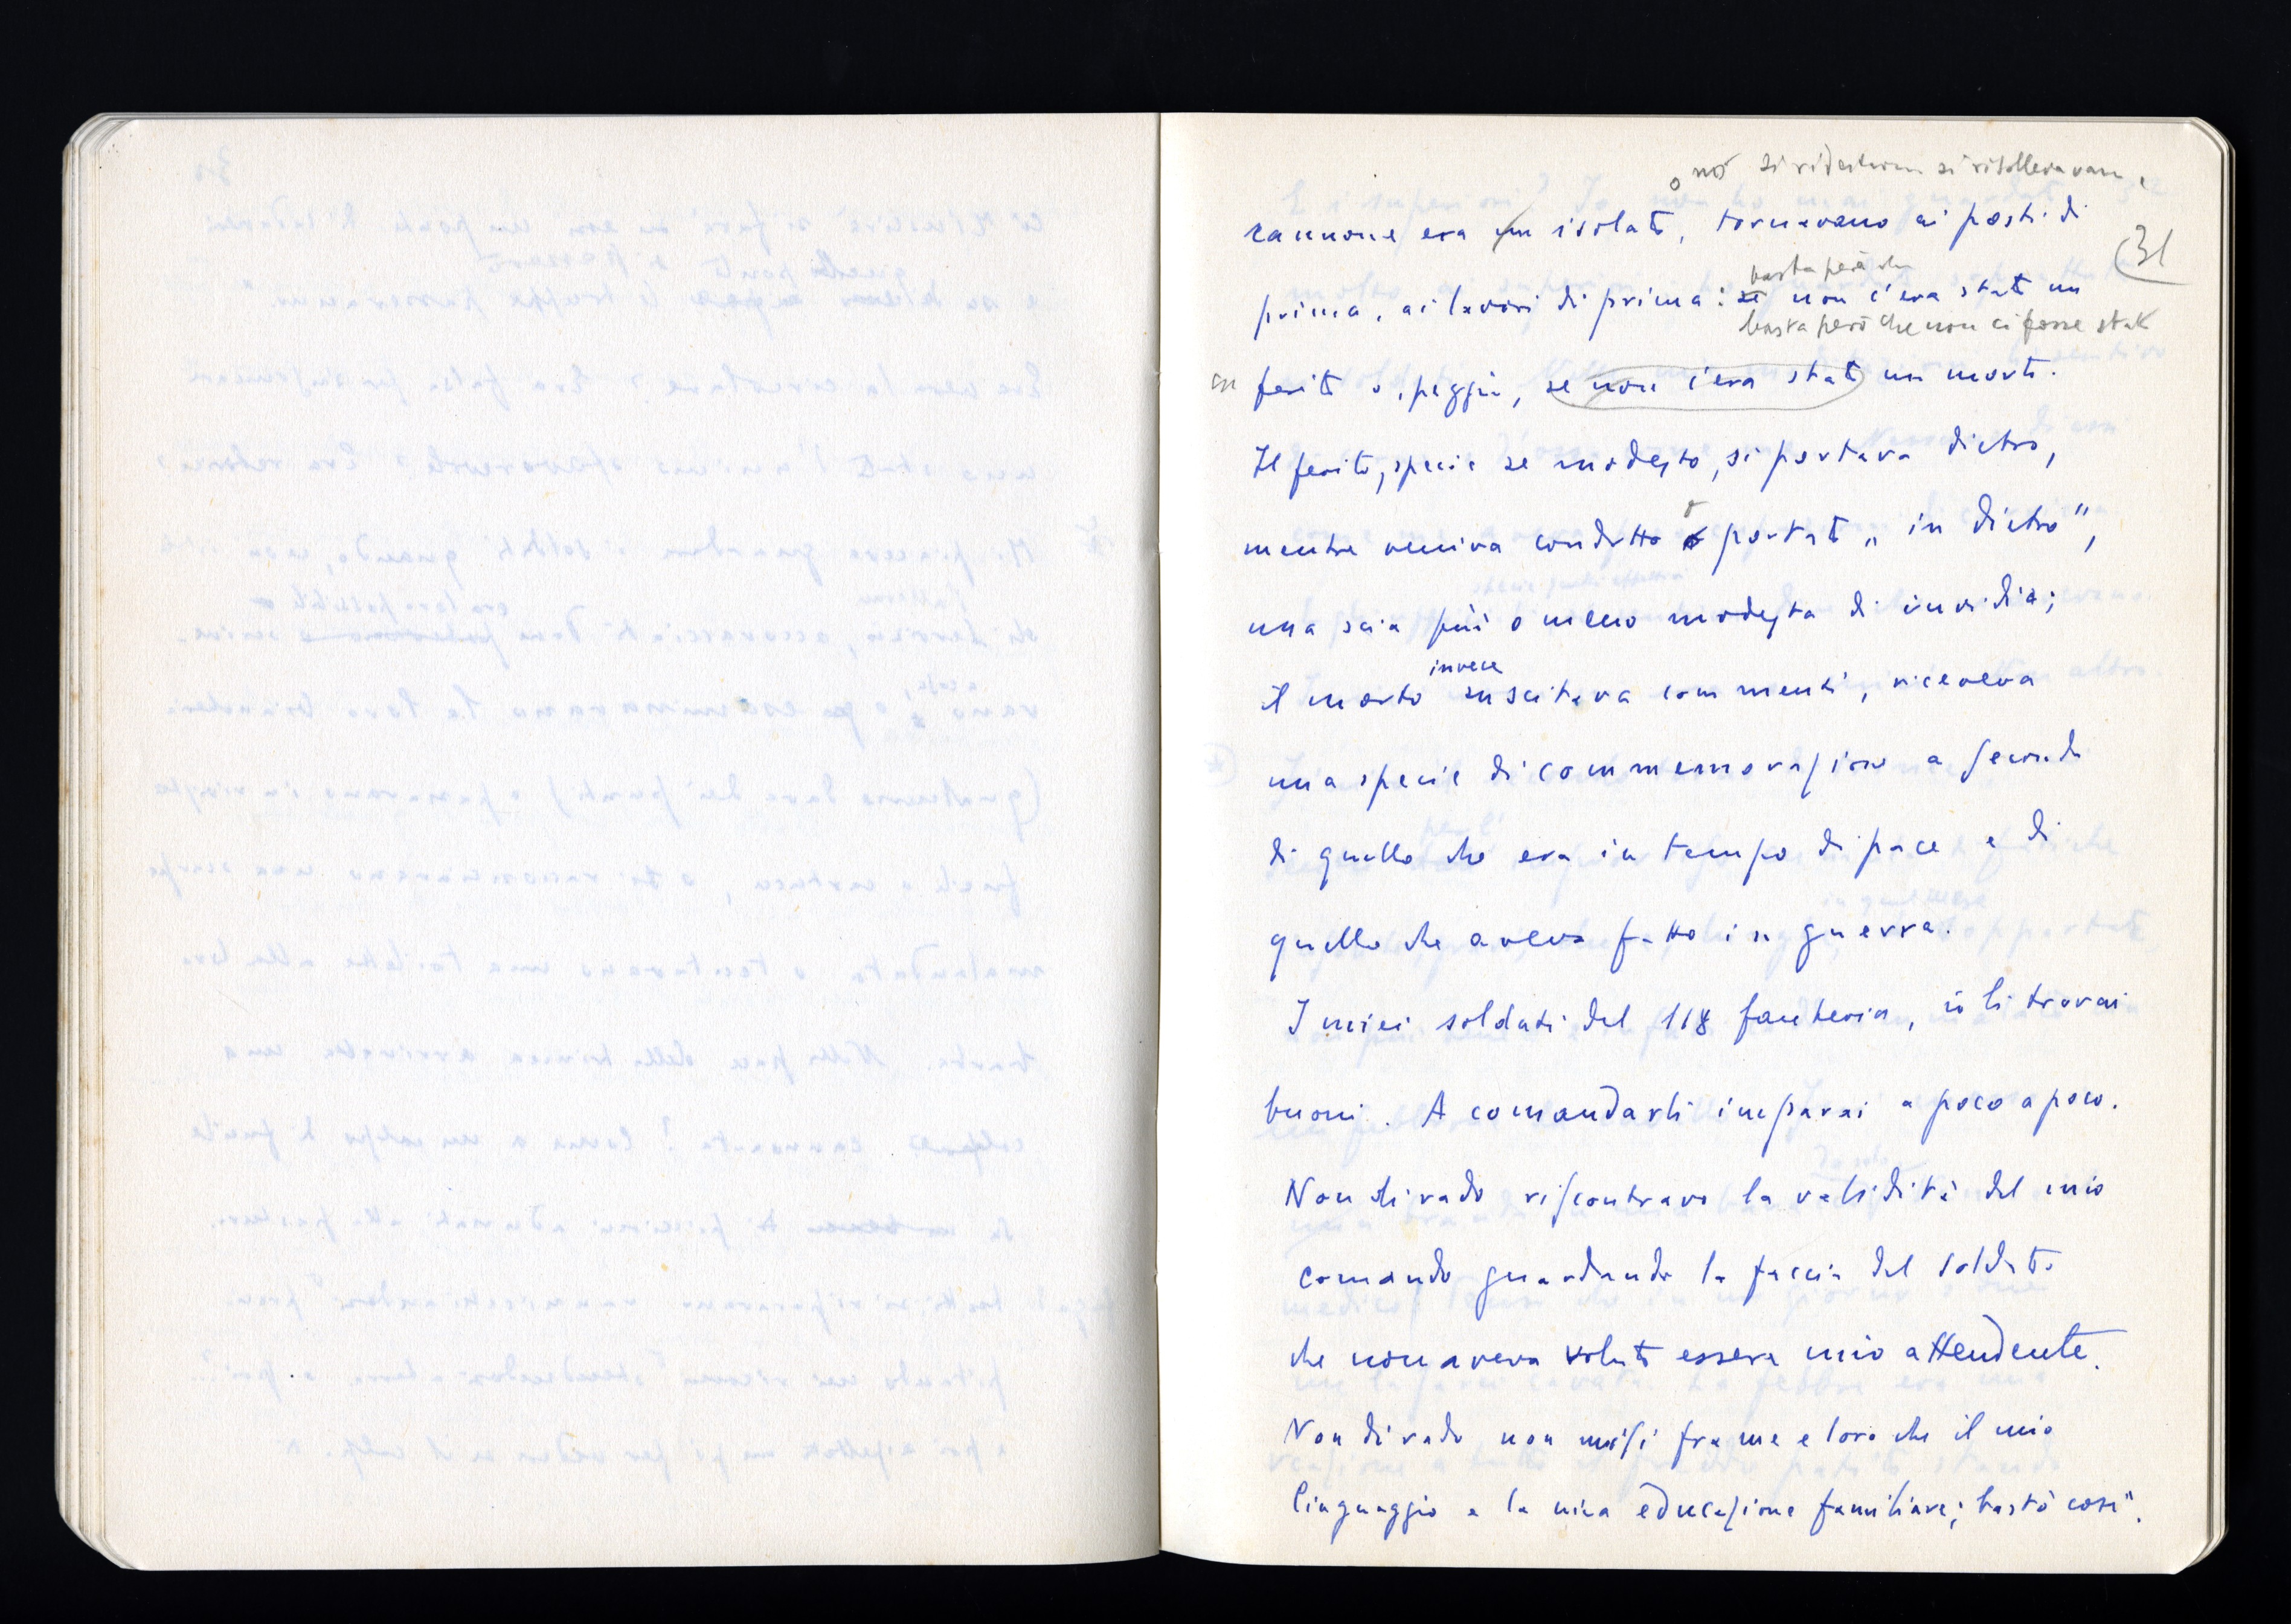 o no si ridestavano si risollevavano,
cannone era un isolato, tornavano ai posti di
31
basta però che
prima, ai lavori di prima: se non c'era stato un
basta però che non ci fosse stato
un
ferito o, peggio, se non c'era stato un morto.
Il ferito, specie se modesto, si portava dietro,
o
mentre veniva condotto o portato "in dietro",
una scia più o meno modesta di invidia;
invece
il morto suscitava commenti, riceveva
una specie di commemorazione a seconda
di quello che era in tempo di pace e di
quello che aveva fatto in guerra.
I miei soldati del 118 fanteria, io li trovai
buoni. A comandarli imparai a poco a poco.
Non di rado riscontravo la validità del mio
comando guardando la faccia del soldato
che non aveva voluto essere mio attendente.
Non di rado non misi fra me e loro che il mio
linguaggio e la mia educazione familiare; bastò così".